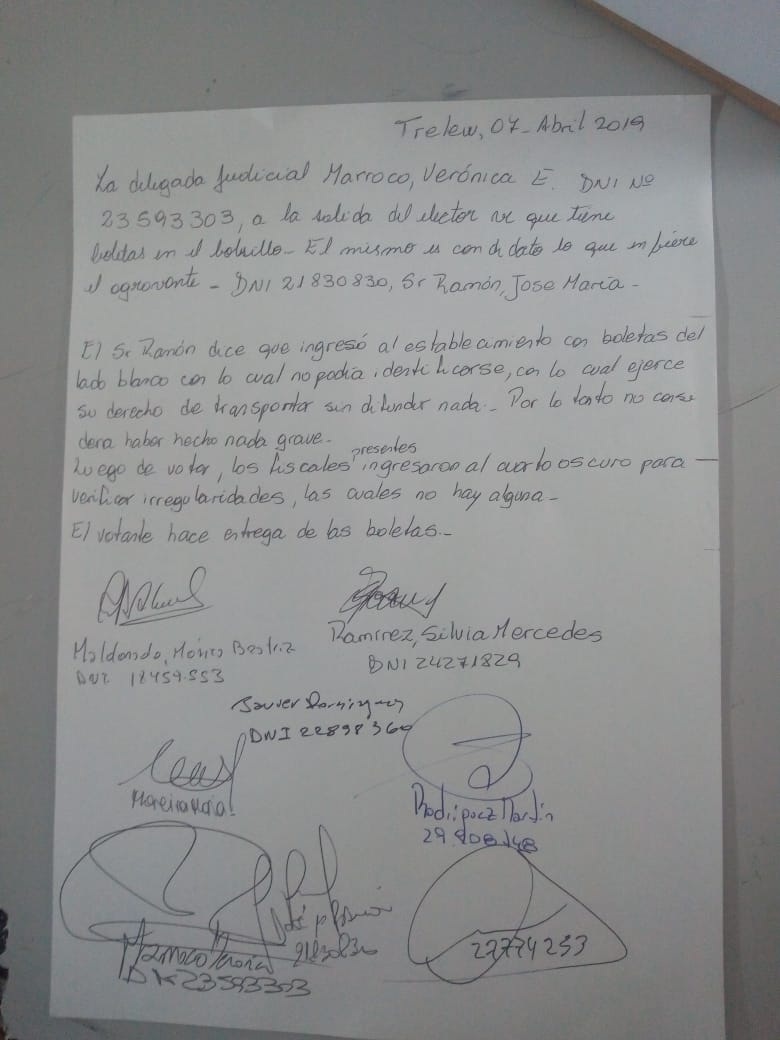 Trelew, 07- Abril 2019
La delegada Judicial Marroco, Verónica E. DNI Nº
23593303, a la salida del elector ve que tiene
boletas en el bolsillo- El mismo es candidato lo que infiere
el agravante - DNI 21830830, Sr Ramón, Jose María -
El Sr Ramón dice que ingresó al establecimiento con boletas del
lado blanco con lo cual no podía identificarse, con lo cual ejerce
su derecho de transportar sin difundir nada- Por lo tanto no consi
dera haber hecho nada grave-
Luego de votar, los fiscales presentes ingresaron al cuarto oscuro para
verificar irregularidades, las cuales no hay alguna -
El votante hace entrega de las boletas.-
Maldonado, Mónica Beatriz
DNI. 18459.553
Ramirez, Silvia Mercedes
DNI 24271829
Javier Dominguez
DNI 22898360
Rodriguez Martin
29.908.148
José
21830830
Marroco
DNI 23593303
27774253